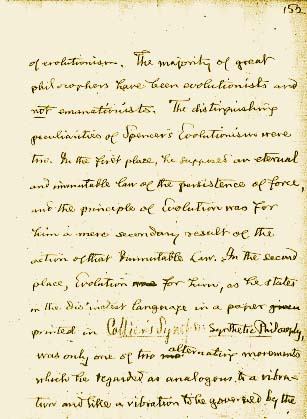 153
of evolutionism. The majority of great
philosophers have been evolutionists and
not emanationists. The distinguishing
peculiarities of Spencer's Evolutionism were
two. In the first place, he supposes an eternal
and immutable law of the persistence of force,
and the principle of Evolution was for
him a mere secondary result of the
action of that Immutable Law. In the second
place, Evolution was for him, as he states
in the distinctest language in a paper
printed in Collins's Synthetic Philosophy,
was only one of two alternating movements
which he regarded as analogous to a vibra-
tion and like a vibration to be governed by the